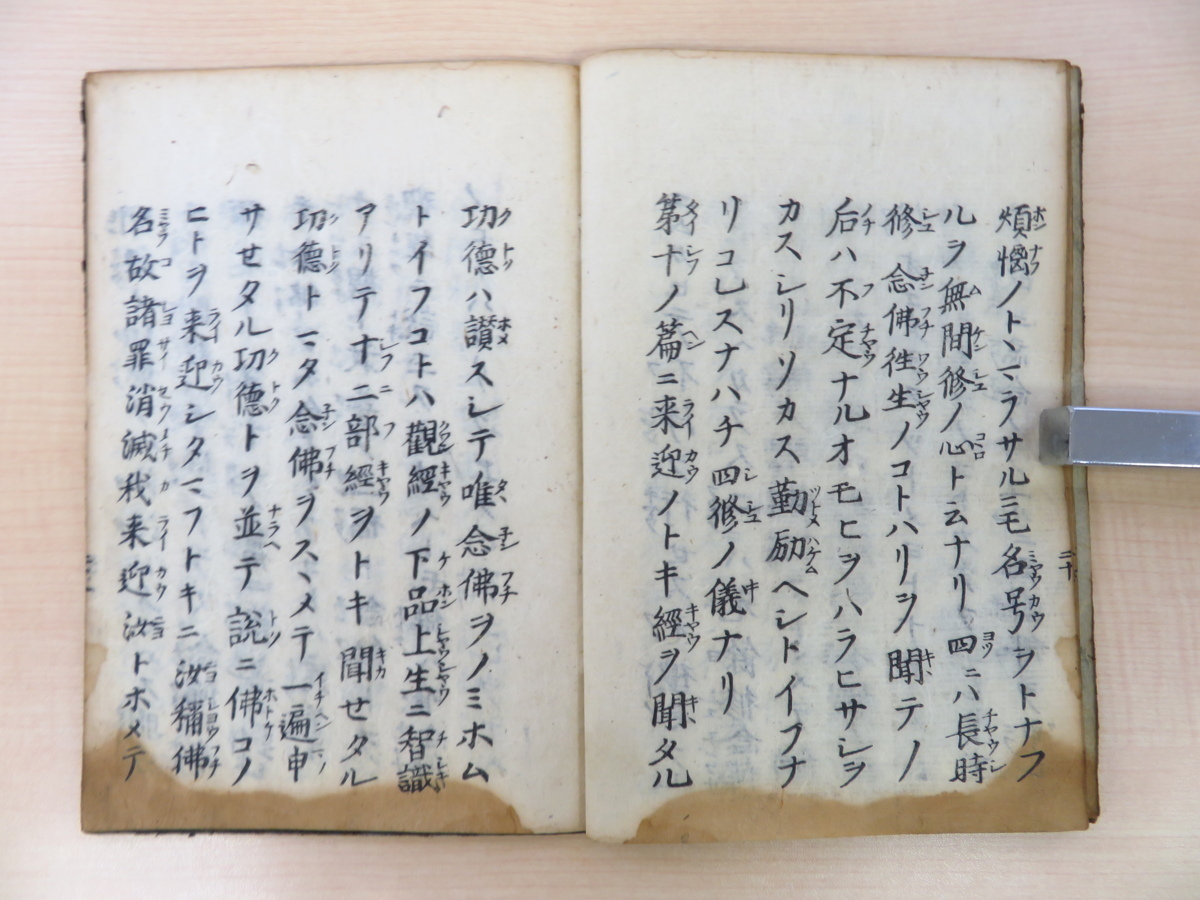 煩惱ノトヽマラサルニモ名号ヲトナフ
ルヲ無間修ノ心ト云ナリ四ニハ長時
修念佛徃生ノコトハリヲ聞テノ
后ハ不定ナルオモヒヲハラヒサシヲ
カスシリソカス勤励ヘシトイフナ
リコレスナハチ四修ノ儀ナリ
第十ノ篇ニ来迎ノトキ經ヲ聞タル
功德ハ讃スシテ唯念佛ヲノミホム
トイフコトハ觀經ノ下品上生ニ智識
アリテ十二部經ヲトキ聞セタル
功德トマタ念佛ヲスヽメテ一遍申
サセタル功德トヲ並テ説ニ佛コノ
ヒトヲ来迎シタマフトキニ汝稱佛
名故諸罪消滅我来迎汝トホメテ